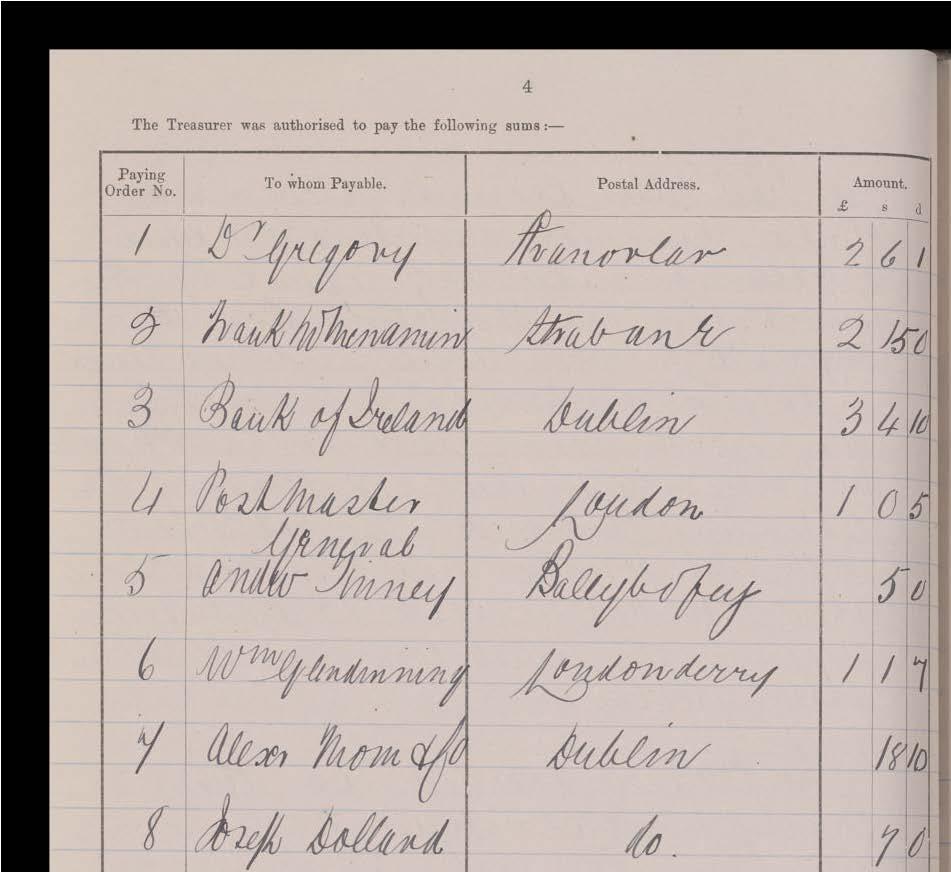 4
The Treasurer was authorised to pay the following sums :—
Paying Order No. To whom Payable. Postal Address. Amount.
£ s d
1 Dr Gregory Stranorlar 2 6 1
2 Frank McMenamin Strabane 2 15 0
3 Bank of Ireland Dublin 3 4 10
4 Postmaster London 1 0 5
General
5 Andw Tinney Ballybofey 5 0
6 Wm Glendinning Londonderry 1 1 7
7 Alexr Thom & Co Dublin 18 10
8 Joseph Dolland do. 7 0